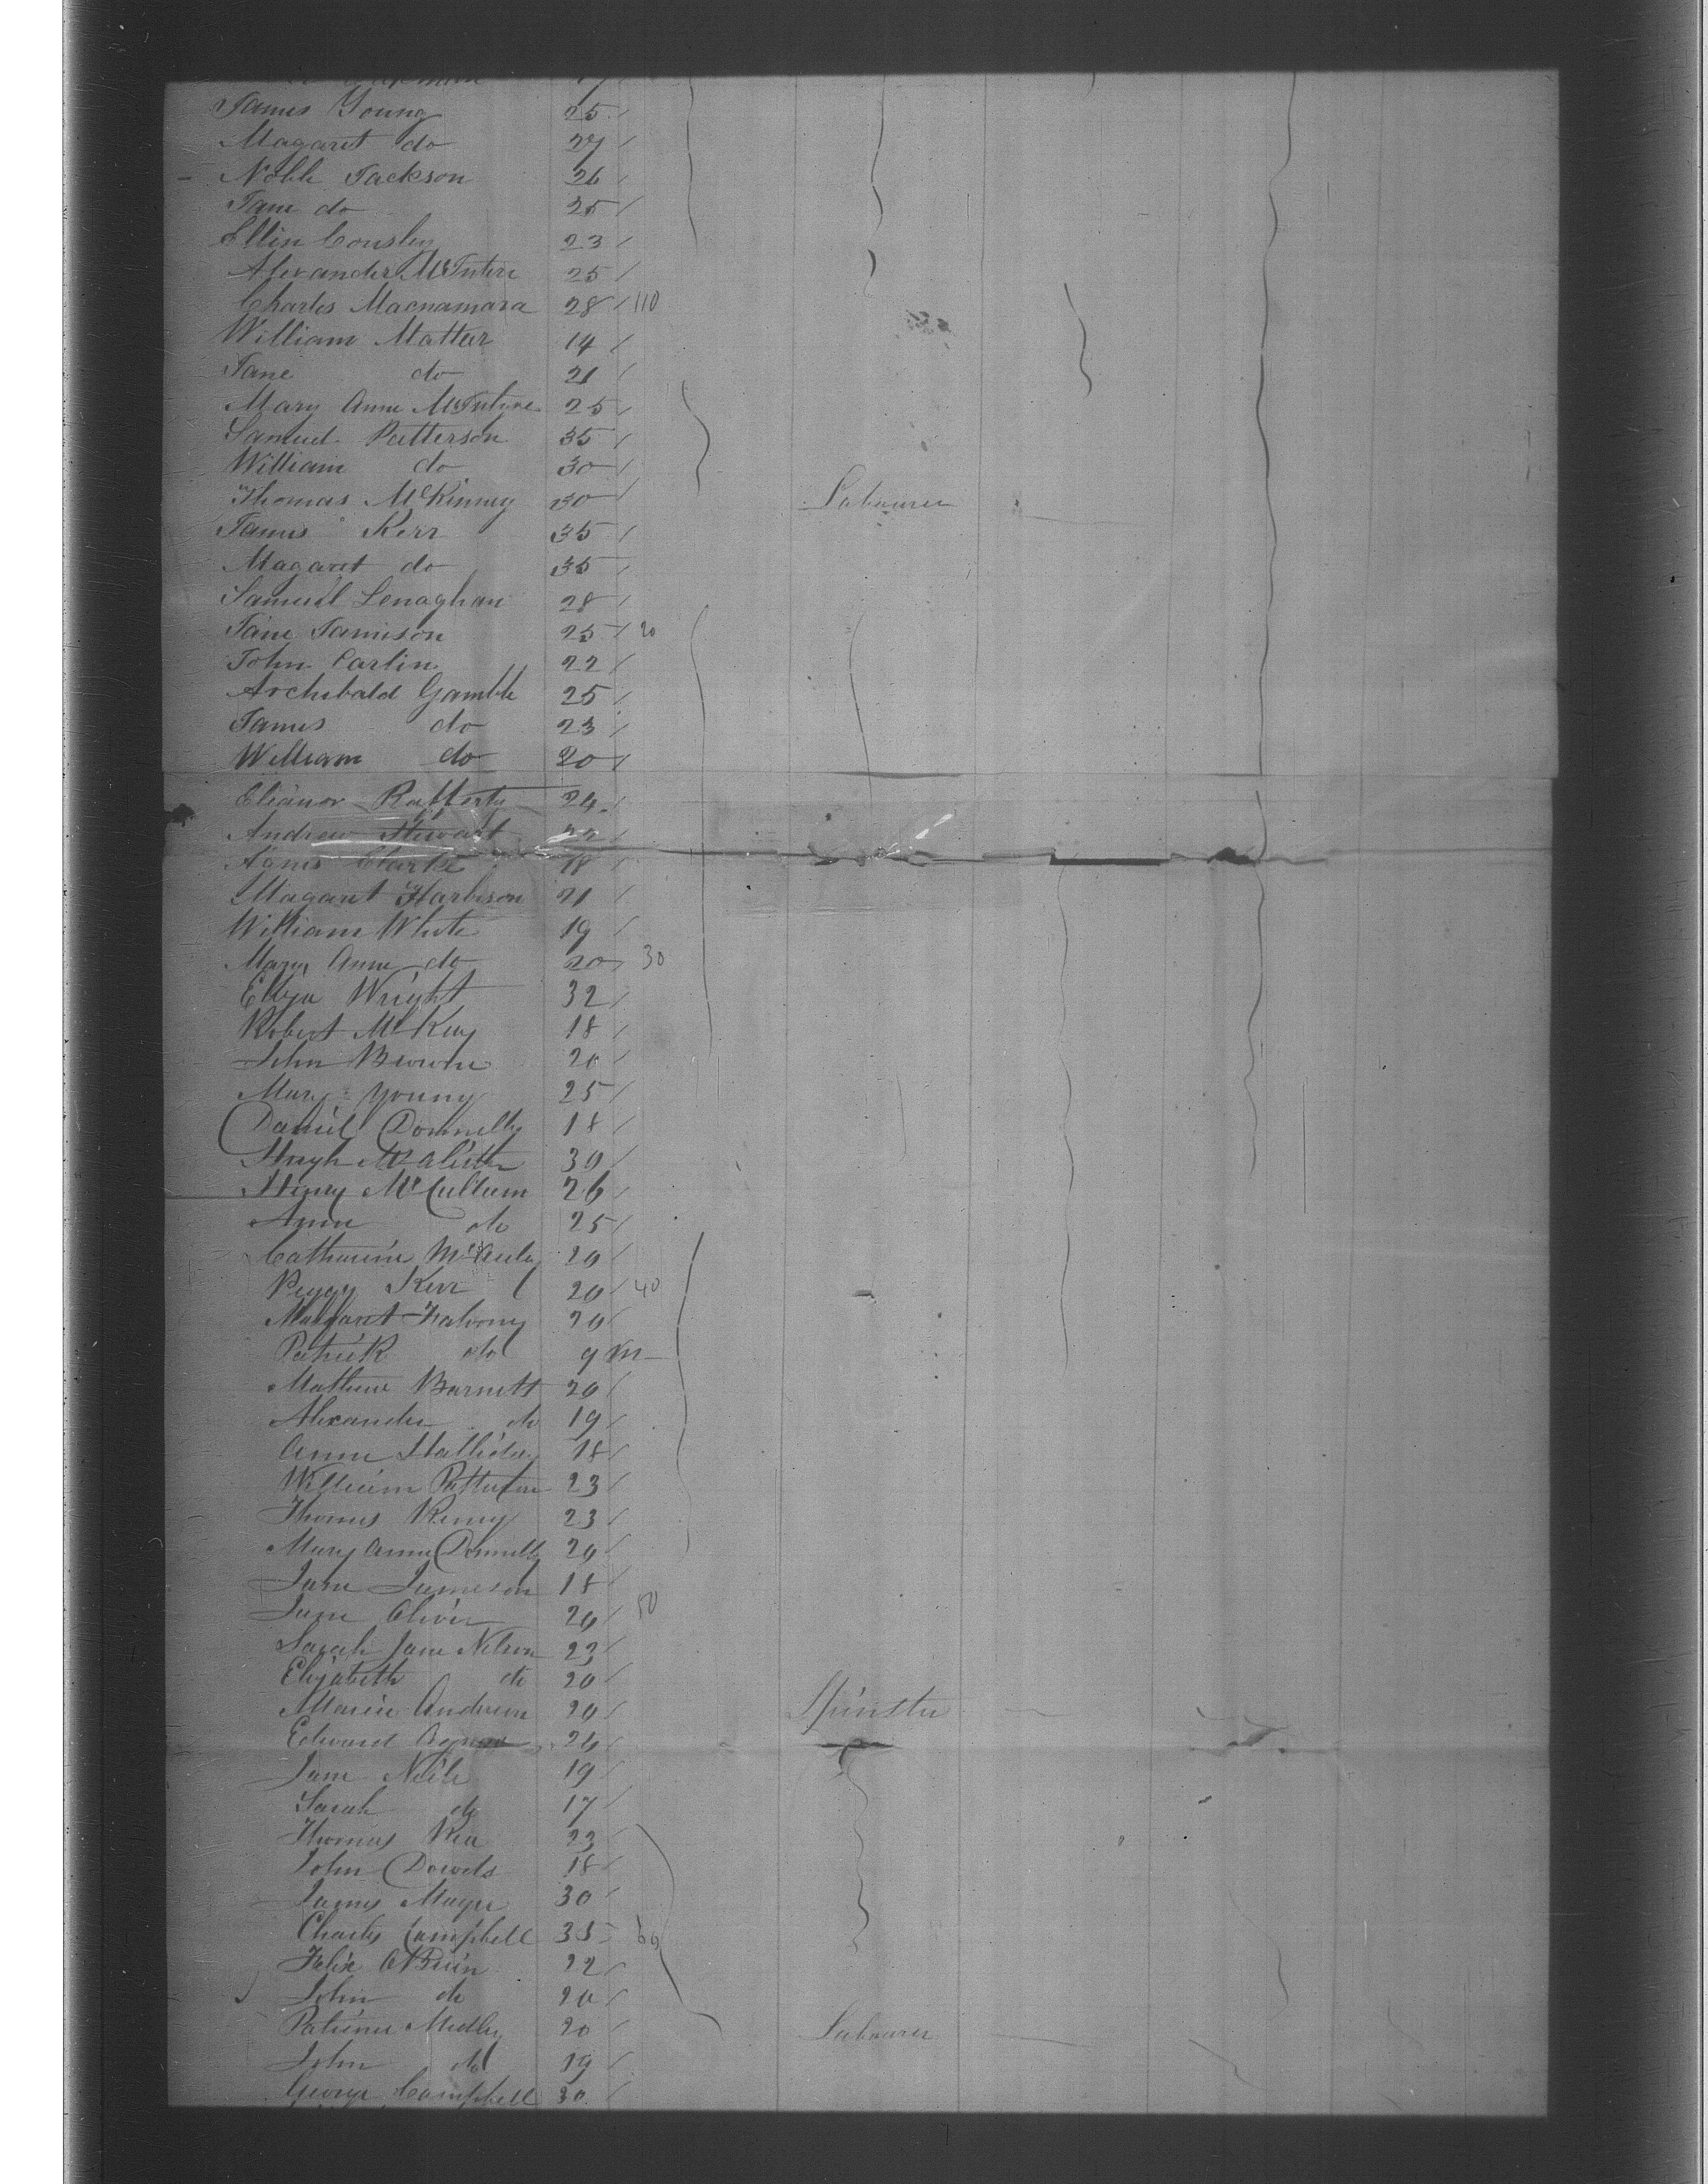 James Young 25
Magaret do 27
Noble Jackson 26
Jane do 25
Ellin Cousley 23
Alexander McIntere 25
Charles Macnamara 28 110
William Matteer 14
Jane do 21
Mary Anne McIntyre 25
Samuel Patterson 35
William do 30
Thomas McKinney 30 Labourer
James Kerr 35
Magaret do 35
Samuel Lenaghan 28
Jane Jamison 25 20
John Carlin 22
Archibald Gamble 25
James do 23
William do 20
Eleanor Rafferty 24
Andrew Stewart 22
Agnes Clarke 18
Magaret Harbison 21
William White 19
Mary Anne do 20 30
Eliza Wright 32
Robert McKay 18
John Browne 20
Mary Young 25
Daniel Donnelly 18
Hugh 30
Henry McCullum 26
Anne do 25
Catherine McAuley 20
Peggy Kerr 20 40
Margaret 20
Patrick do 9 m
Mathew Barnett 20
Alexander do 19
Anne Halliday 18
William Patterson 23
Thomas 23
Mary Anne Donnelly 20
Jane Jameson 18
Jane Oliver 20 50
Sarah Jane Nelson 23
Elizabeth do 20
Maria Andrew 20 Spinster
Edward Agnew 26
Jane Neile 19
Sarah do 17
Thomas Rea 23
John Dowds 18
James 30
Charles Campbell 35 60
Felix OBrien 22
John do 20
20 Labourer
John do 19
George Campbell 30